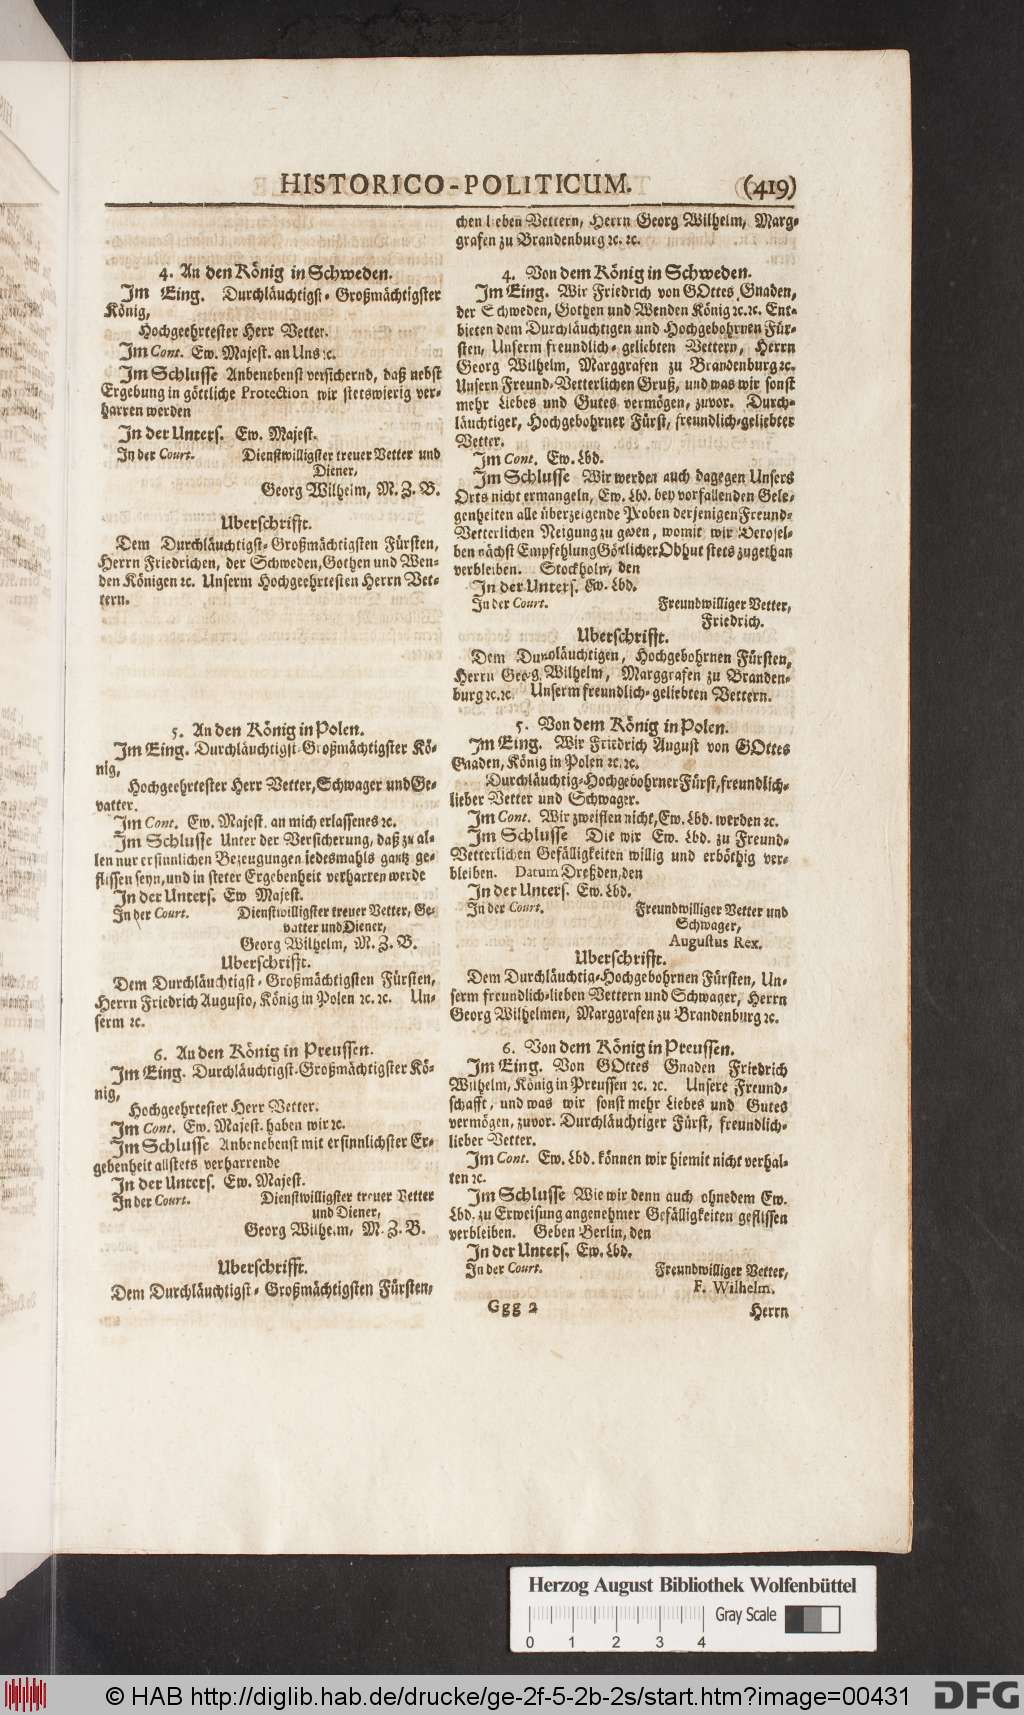 HISTORICO-POLITICUM. (419)
4. An den König in Schweden.
Im Eing. Durchläuchtigst-Großmächtigster
König,
Hochgeehrtester Herr Vetter.
Im Cont. Ew. Majest. an Uns ꝛc.
Im Schlusse Anbenebenst versichernd, daß nebst
Ergebung in göttliche Protection wir stetswierig ver-
harren werden
In der Unters. Ew. Majest.
In der Court. Dienstwilligster treuer Vetter und
Diener,
Georg Wilhelm, M. Z. B.
Uberschrifft.
Dem Durchläuchtigst-Großmächtigsten Fürsten,
Herrn Friedrichen, der Schweden, Gothen und Wen-
den Königen ꝛc. Unserm Hochgeehrtesten Herrn Vet-
tern.
5. An den König in Polen.
Im Eing. Durchläuchtigst-Großmächtigster Kö-
nig,
Hochgeehrtester Herr Vetter, Schwager und Ge-
vatter.
Im Cont. Ew. Majest. an mich erlassenes ꝛc.
Im Schlusse Unter der Versicherung, daß zu al-
len nur ersinnlichen Bezeugungen iedesmahls gantz ge-
flissen seyn, und in steter Ergebenheit verharren werde
In der Unters. Ew Majest.
In der Court. Dienstwilligster treuer Vetter, Ge-
vatter und Diener,
Georg Wilhelm, M. Z. B.
Uberschrifft.
Dem Durchläuchtigst-Großmächtigsten Fürsten,
Herrn Friedrich Augusto, König in Polen ꝛc. ꝛc. Un-
serm ꝛc.
6. An den König in Preussen.
Im Eing. Durchläuchtigst-Großmächtigster Kö-
nig,
Hochgeehrtester Herr Vetter.
Im Cont. Ew. Majest. haben wir ꝛc.
Im Schlusse Anbenebenst mit ersinnlichster Er-
gebenheit allstets verharrende
In der Unters. Ew. Majest.
In der Court. Dienstwilligster treuer Vetter
und Diener,
Georg Wilhelm, M. Z. B.
Uberschrifft.
Dem Durchläuchtigst-Großmächtigsten Fürsten,
chen lieben Vettern, Herrn Georg Wilhelm, Marg-
grafen zu Brandenburg ꝛc. ꝛc.
4. Von dem König in Schweden.
Im Eing. Wir Friedrich von GOttes Gnaden,
der Schweden, Gothen und Wenden König ꝛc. ꝛc. Ent-
bieten dem Durchläuchtigen und Hochgebohrnen Für-
sten, Unserm freundlich-geliebten Vettern, Herrn
Georg Wilhelm, Marggrafen zu Brandenburg ꝛc.
Unsern Freund-Vetterlichen Gruß, und was wir sonst
mehr Liebes und Gutes vermögen, zuvor. Durch-
läuchtiger, Hochgebohrner Fürst, freundlich-geliebter
Vetter.
Im Cont. Ew. Lbd.
Im Schlusse Wir werden auch dagegen Unsers
Orts nicht ermangeln, Ew. Lbd. bey vorfallenden Gele-
genheiten alle überzeigende Proben derjenigen Freund-
Vetterlichen Neigung zu geben, womit wir Deroſel-
ben nächst Empfehlung Göttlicher Obhut stets zugethan
verbleiben. Stockholm, den
In der Unters. Ew. Lbd.
In der Court. Freundwilliger Vetter,
Friedrich.
Uberschrifft.
Dem Durchläuchtigen, Hochgebohrnen Fürsten,
Herrn Georg Wilhelm, Marggrafen zu Branden-
burg ꝛc. ꝛc. Unserm freundlich-geliebten Vettern.
5. Von dem König in Polen.
Im Eing. Wir Friedrich August von GOttes
Gnaden, König in Polen ꝛc. ꝛc.
Durchläuchtig-Hochgebohrner Fürst, freundlich-
lieber Vetter und Schwager.
Im Cont. Wir zweiflen nicht, Ew. Lbd. werden ꝛc.
Im Schlusse Die wir Ew. Lbd. zu Freund-
Vetterlichen Gefälligkeiten willig und erböthig ver-
bleiben. Datum Dreßden, den
In der Unters. Ew. Lbd.
In der Court. Freundwilliger Vetter und
Schwager,
Augustus Rex.
Uberschrifft.
Dem Durchläuchtig-Hochgebohrnen Fürsten, Un-
serm freundlich-lieben Vettern und Schwager, Herrn
Georg Wilhelmen, Marggrafen zu Brandenburg ꝛc.
6. Von dem König in Preussen.
Im Eing. Von GOttes Gnaden Friedrich
Wilhelm, König in Preussen ꝛc. ꝛc. Unsere Freund-
schafft, und was wir sonst mehr Liebes und Gutes
vermögen, zuvor. Durchläuchtiger Fürst, freundlich-
lieber Vetter.
Im Cont. Ew. Lbd. können wir hiemit nicht verhal-
ten ꝛc.
Im Schlusse Wie wir denn auch ohnedem Ew.
Lbd. zu Erweisung angenehmer Gefälligkeiten geflissen
verbleiben. Geben Berlin, den
In der Unters. Ew. Lbd.
In der Court. Freundwilliger Vetter,
F. Wilhelm.
Ggg 2 Herrn
Herzog August Bibliothek Wolfenbüttel
Gray Scale
0 1 2 3 4
© HAB http://diglib.hab.de/drucke/ge-2f-5-2b-2s/start.htm?image=00431
DFG